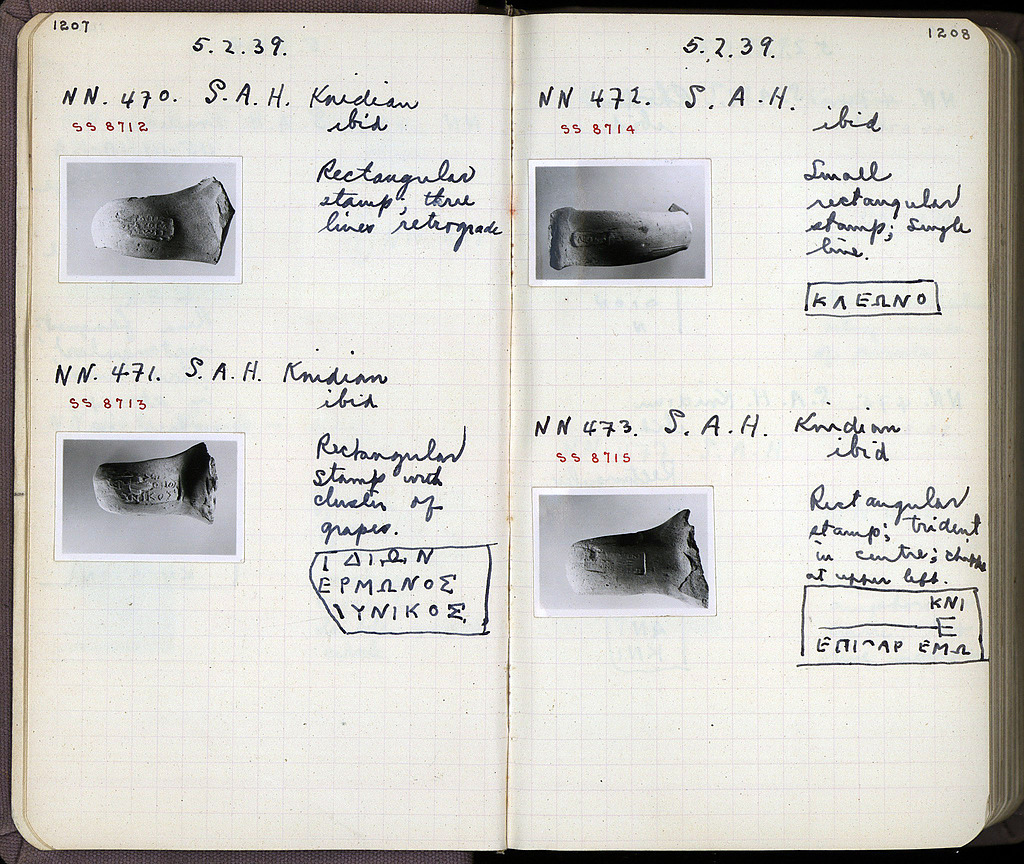 1207
5.2.39.
NN. 470. S.A.H. Knidian
ibid
SS 8712
Rectangular
stamp; three
lines retrograde
NN. 471. S.A.H. Knidian
ibid
SS 8713
Rectangular
stamp with
cluster of
grapes.
Ι ΔΙΩΝ
ΕΡΜΩΝΟΣ
ΙΥΝΙΚΟΣ
1208
5.2.39.
NN 472. S.A.H.
ibid
SS 8714
Small
rectangular
stamp; single
line.
ΚΛΕΩΝΟ
NN 473. S.A.H. Knidian
ibid
SS 8715
Rectangular
stamp; trident
in centre; chipped
at upper left.
ΚΝΙ
ΕΠΙ ΑΡ ΕΜΩ